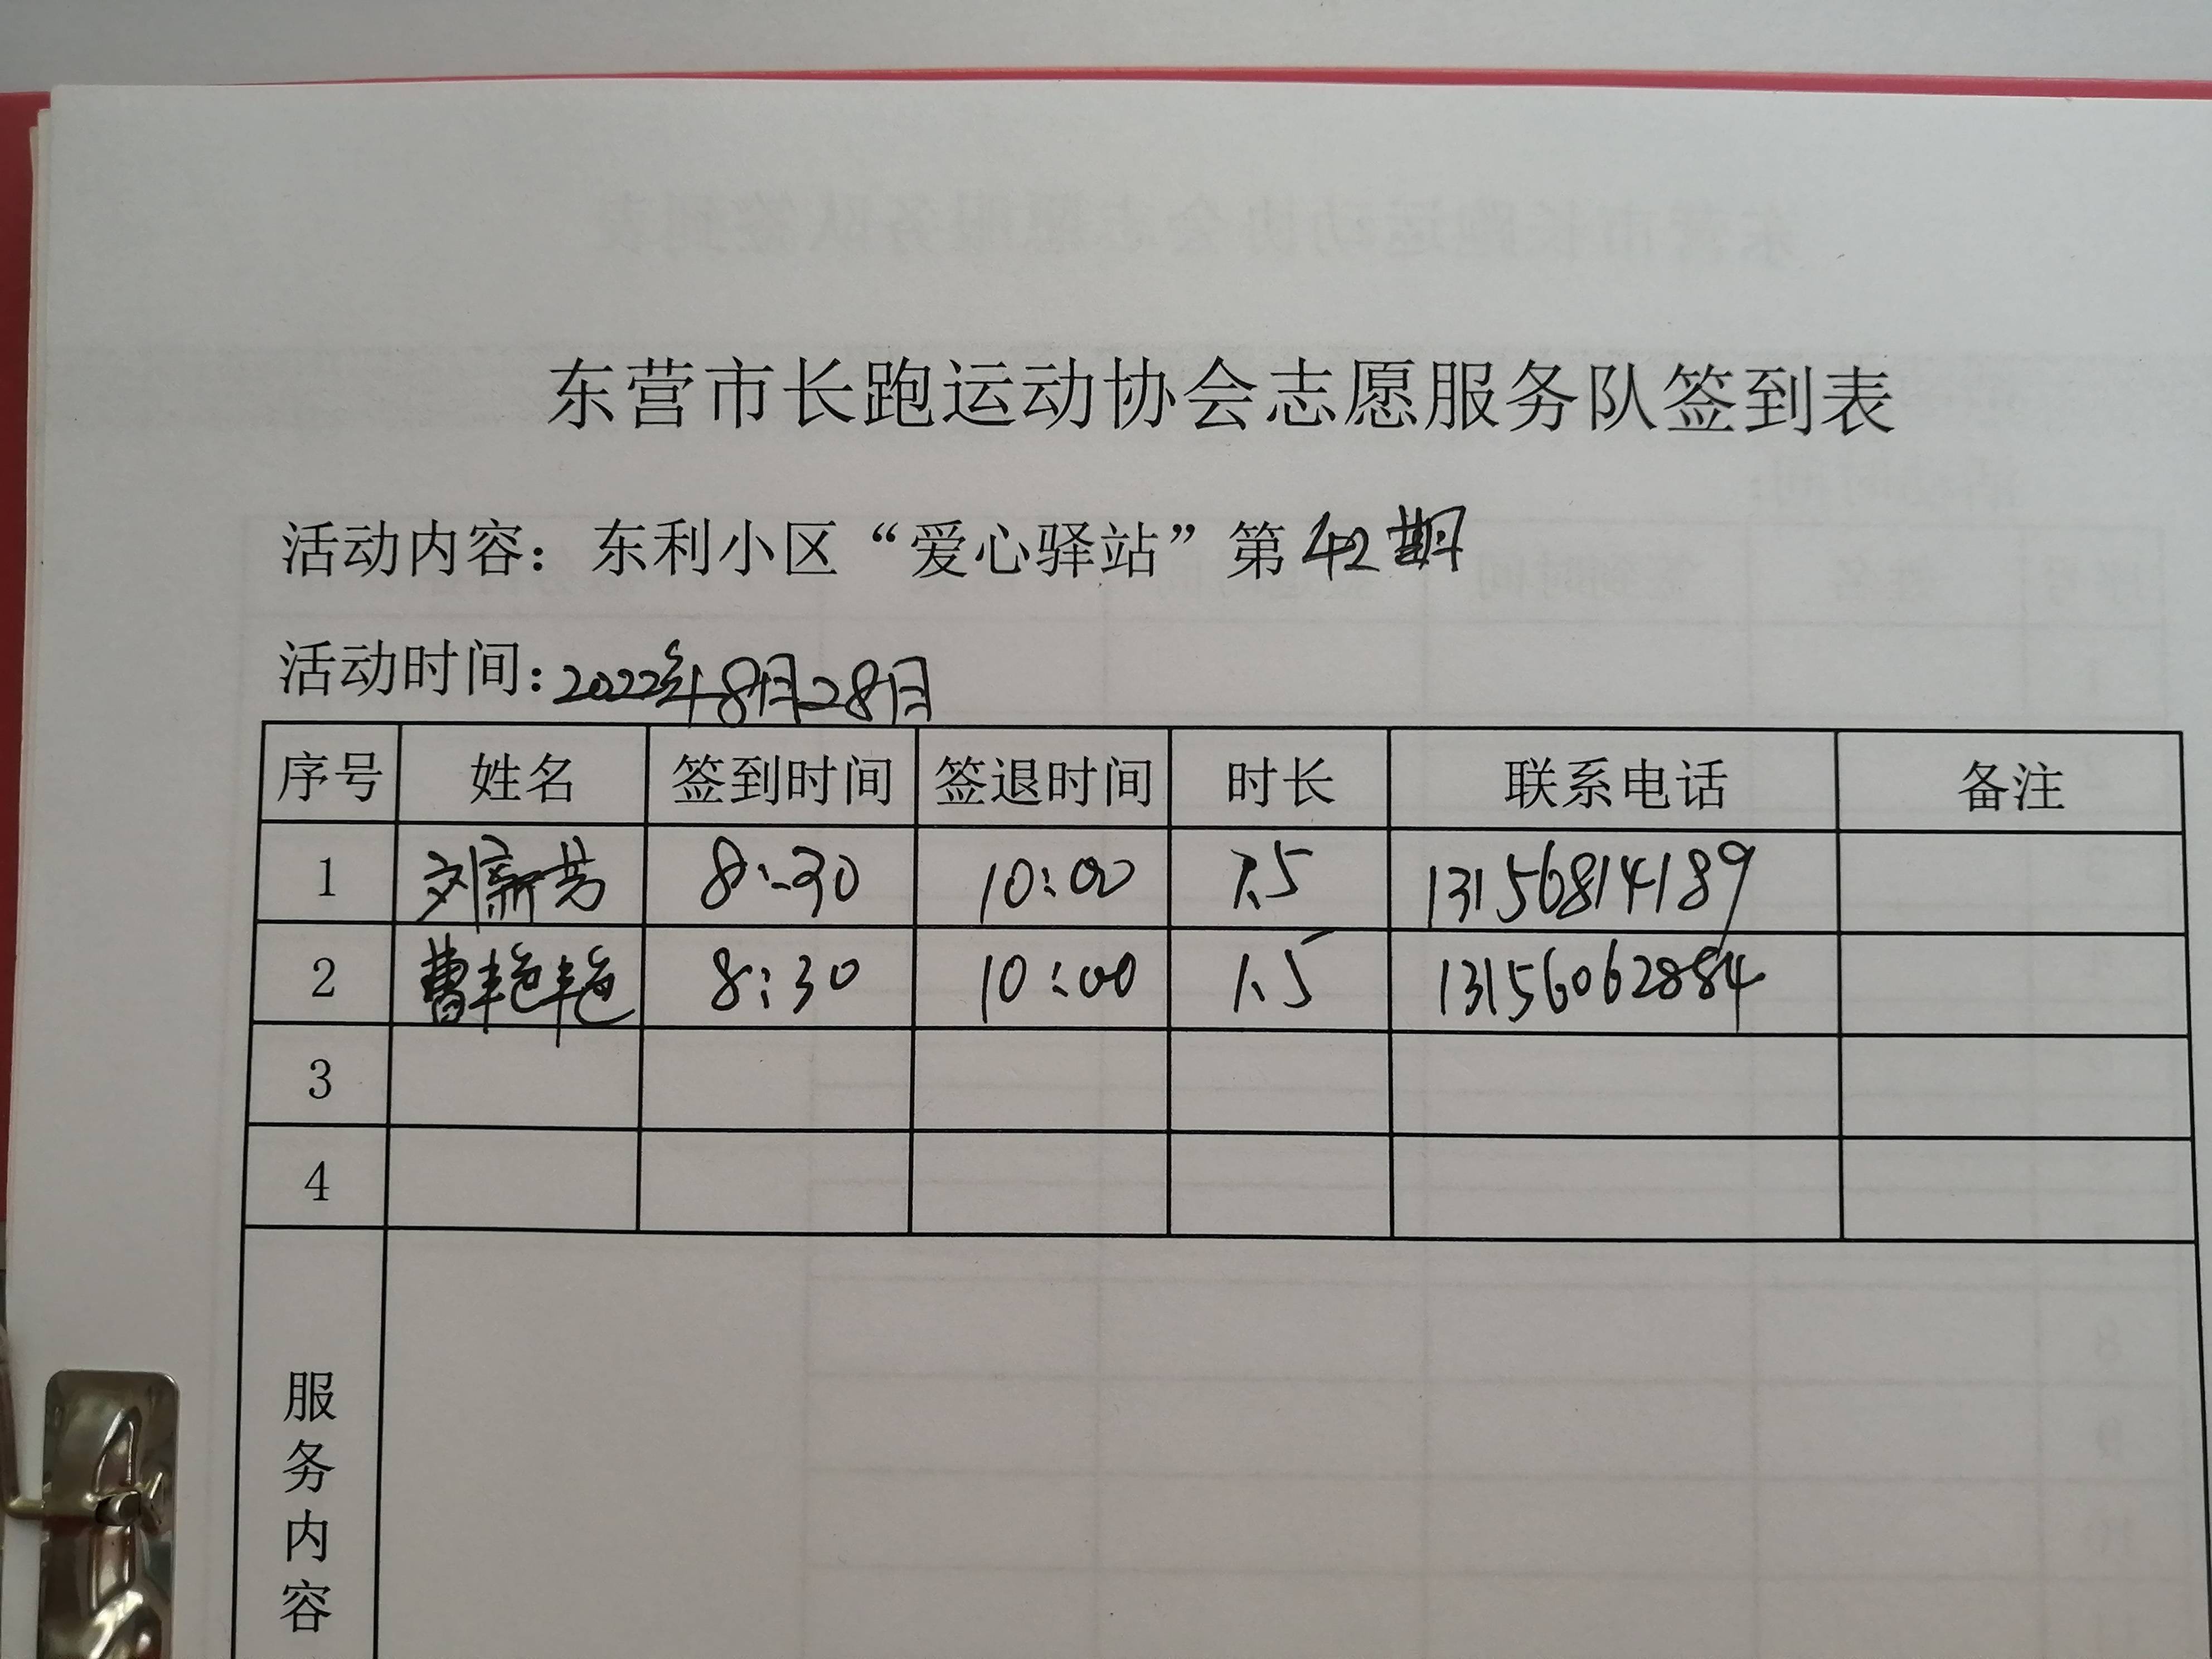 东营市长跑运动协会志愿服务队签到表
活动内容：东利小区“爱心驿站”第42期
活动时间：2022年8月28日
序号 姓名 签到时间 签退时间 时长 联系电话 备注
1 刘新芳 8:30 10:00 1.5 13156814189
2 曹艳艳 8:30 10:00 1.5 13156062884
3
4
服务内容